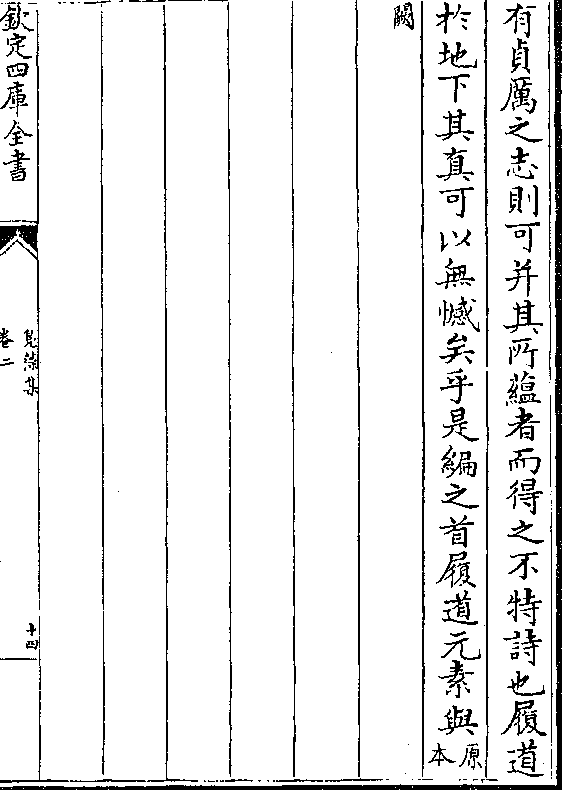 有貞厲之志則可并其所蘊者而得之不特詩也履道
於地下其真可以無憾矣乎是編之首履道元素與原本
闕
欽定四庫全書
卷二
十四